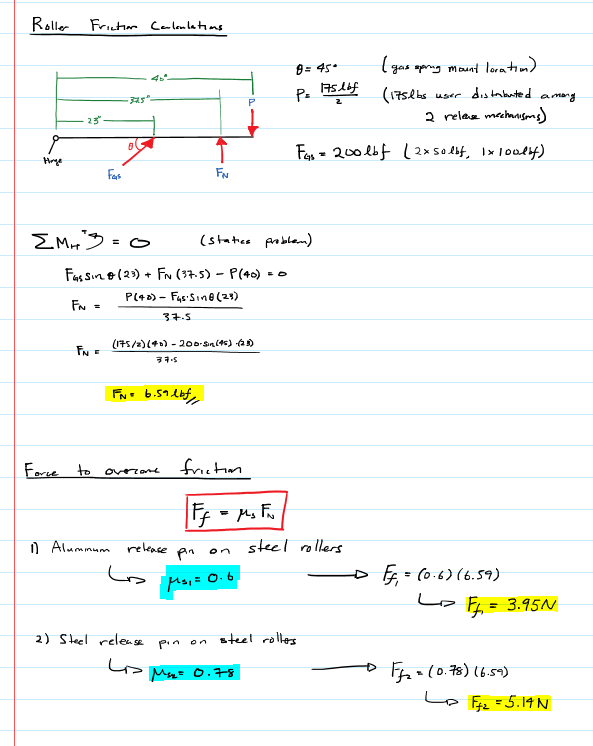 Roller Friction Calculations
40"
37.5"
23"
P
θ
Hinge
F_GS
F_N
θ = 45° (gas spring mount location)
P = 175lbf/2 (175lbs user distributed among 2 release mechanisms)
F_GS = 200 lbf (2x50lbf, 1x100lbf)
ΣM_H = 0 (statics problem)
F_GS sinθ(23) + F_N(37.5) - P(40) = 0
F_N = P(40) - F_GS·sinθ(23) / 37.5
F_N = (175/2)(40) - 200·sin(45)·(23) / 37.5
F_N = 6.59 lbf
Force to overcome friction
F_f = μ_s F_N
1) Aluminum release pin on steel rollers
μ_s1 = 0.6
F_f1 = (0.6)(6.59)
F_f1 = 3.95N
2) Steel release pin on steel rollers
μ_s2 = 0.78
F_f2 = (0.78)(6.59)
F_f2 = 5.14N